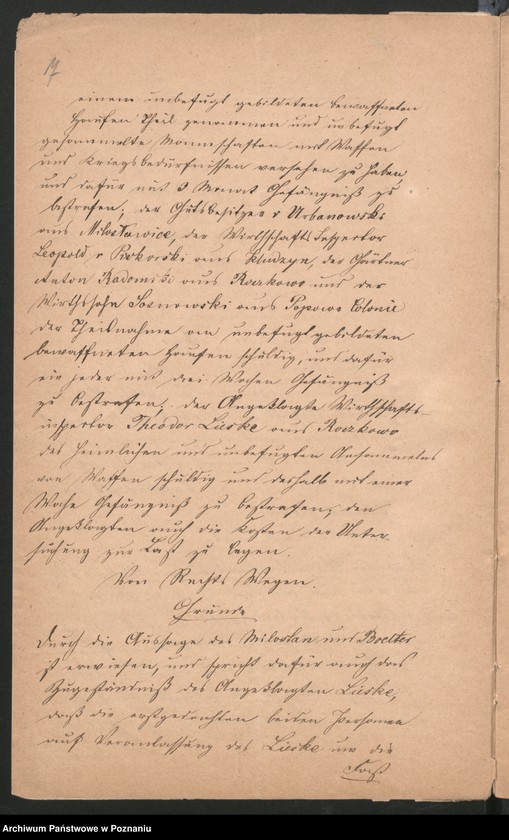 17
einem unbefugt gebildeten bewaffneten
Haufen Theil genommen und unbefugt
gesammelte Mannschaften mit Waffen
und Kriegsbedürfnissen versehen zu haben
und dafür mit 3 Monat Gefängniß zu
bestrafen; der Gutsbesitzer v Urbanowski
aus Miłosławice, der Wirthschafts Inspector
Leopold v aus der Gärtner
Anton Radomski aus Roczkowo und der
Wirthssohn Sosnowski aus Popowo Colonie
der Theilnahme an unbefugt gebildeten
bewaffneten Haufen schuldig, und dafür
ein jeder mit drei Wochen Gefängniß
zu bestrafen; der Angeklagte Wirthschafts-
inspector Theodor Lieske aus Roczkowo
des heimlichen und unbefugten Ansammelns
von Waffen schuldig und deshalb mit einer
Woche Gefängniß zu bestrafen; den
Angeklagten auch die Kosten der Unter
suchung zur Last zu legen.
Von Rechts Wegen.
Gründe
Durch die Aussage des Miloslan und Boelter
ist erwiesen, und spricht dafür auch das
Zugeständniß des Angeklagten Lieske,
daß die erstgedachten beiden Personen
auf Veranlassung des Lieske um die
Archiwum Państwowe w Poznaniu